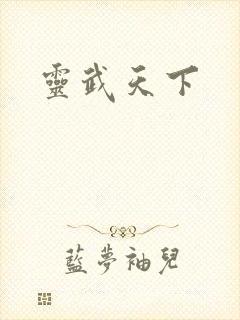 靈武天下
藍夢袖兒